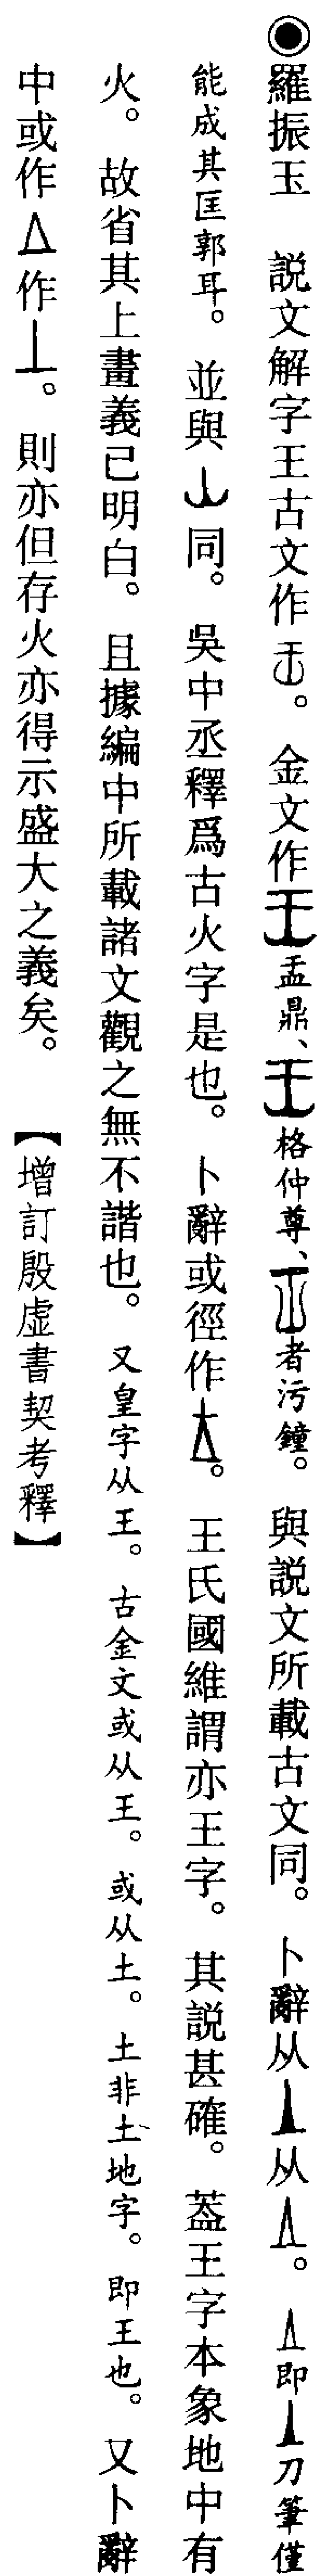 ◉羅振玉　説文解字王古文作。金文作盂鼎、格仲尊、者污鐘。與説文所載古文同。卜辭从从。即刀筆僅
能成其匡郭耳。並與同。吳中丞釋爲古火字是也。卜辭或徑作。王氏國維謂亦王字。其説甚確。葢王字本象地中有
火。故省其上畫義已明白。且據編中所載諸文觀之無不諧也。又皇字从王。古金文或从王。或从土。土非土地字。即王也。又卜辭
中或作作。則亦但存火亦得示盛大之義矣。【增訂殷虛書契考釋】